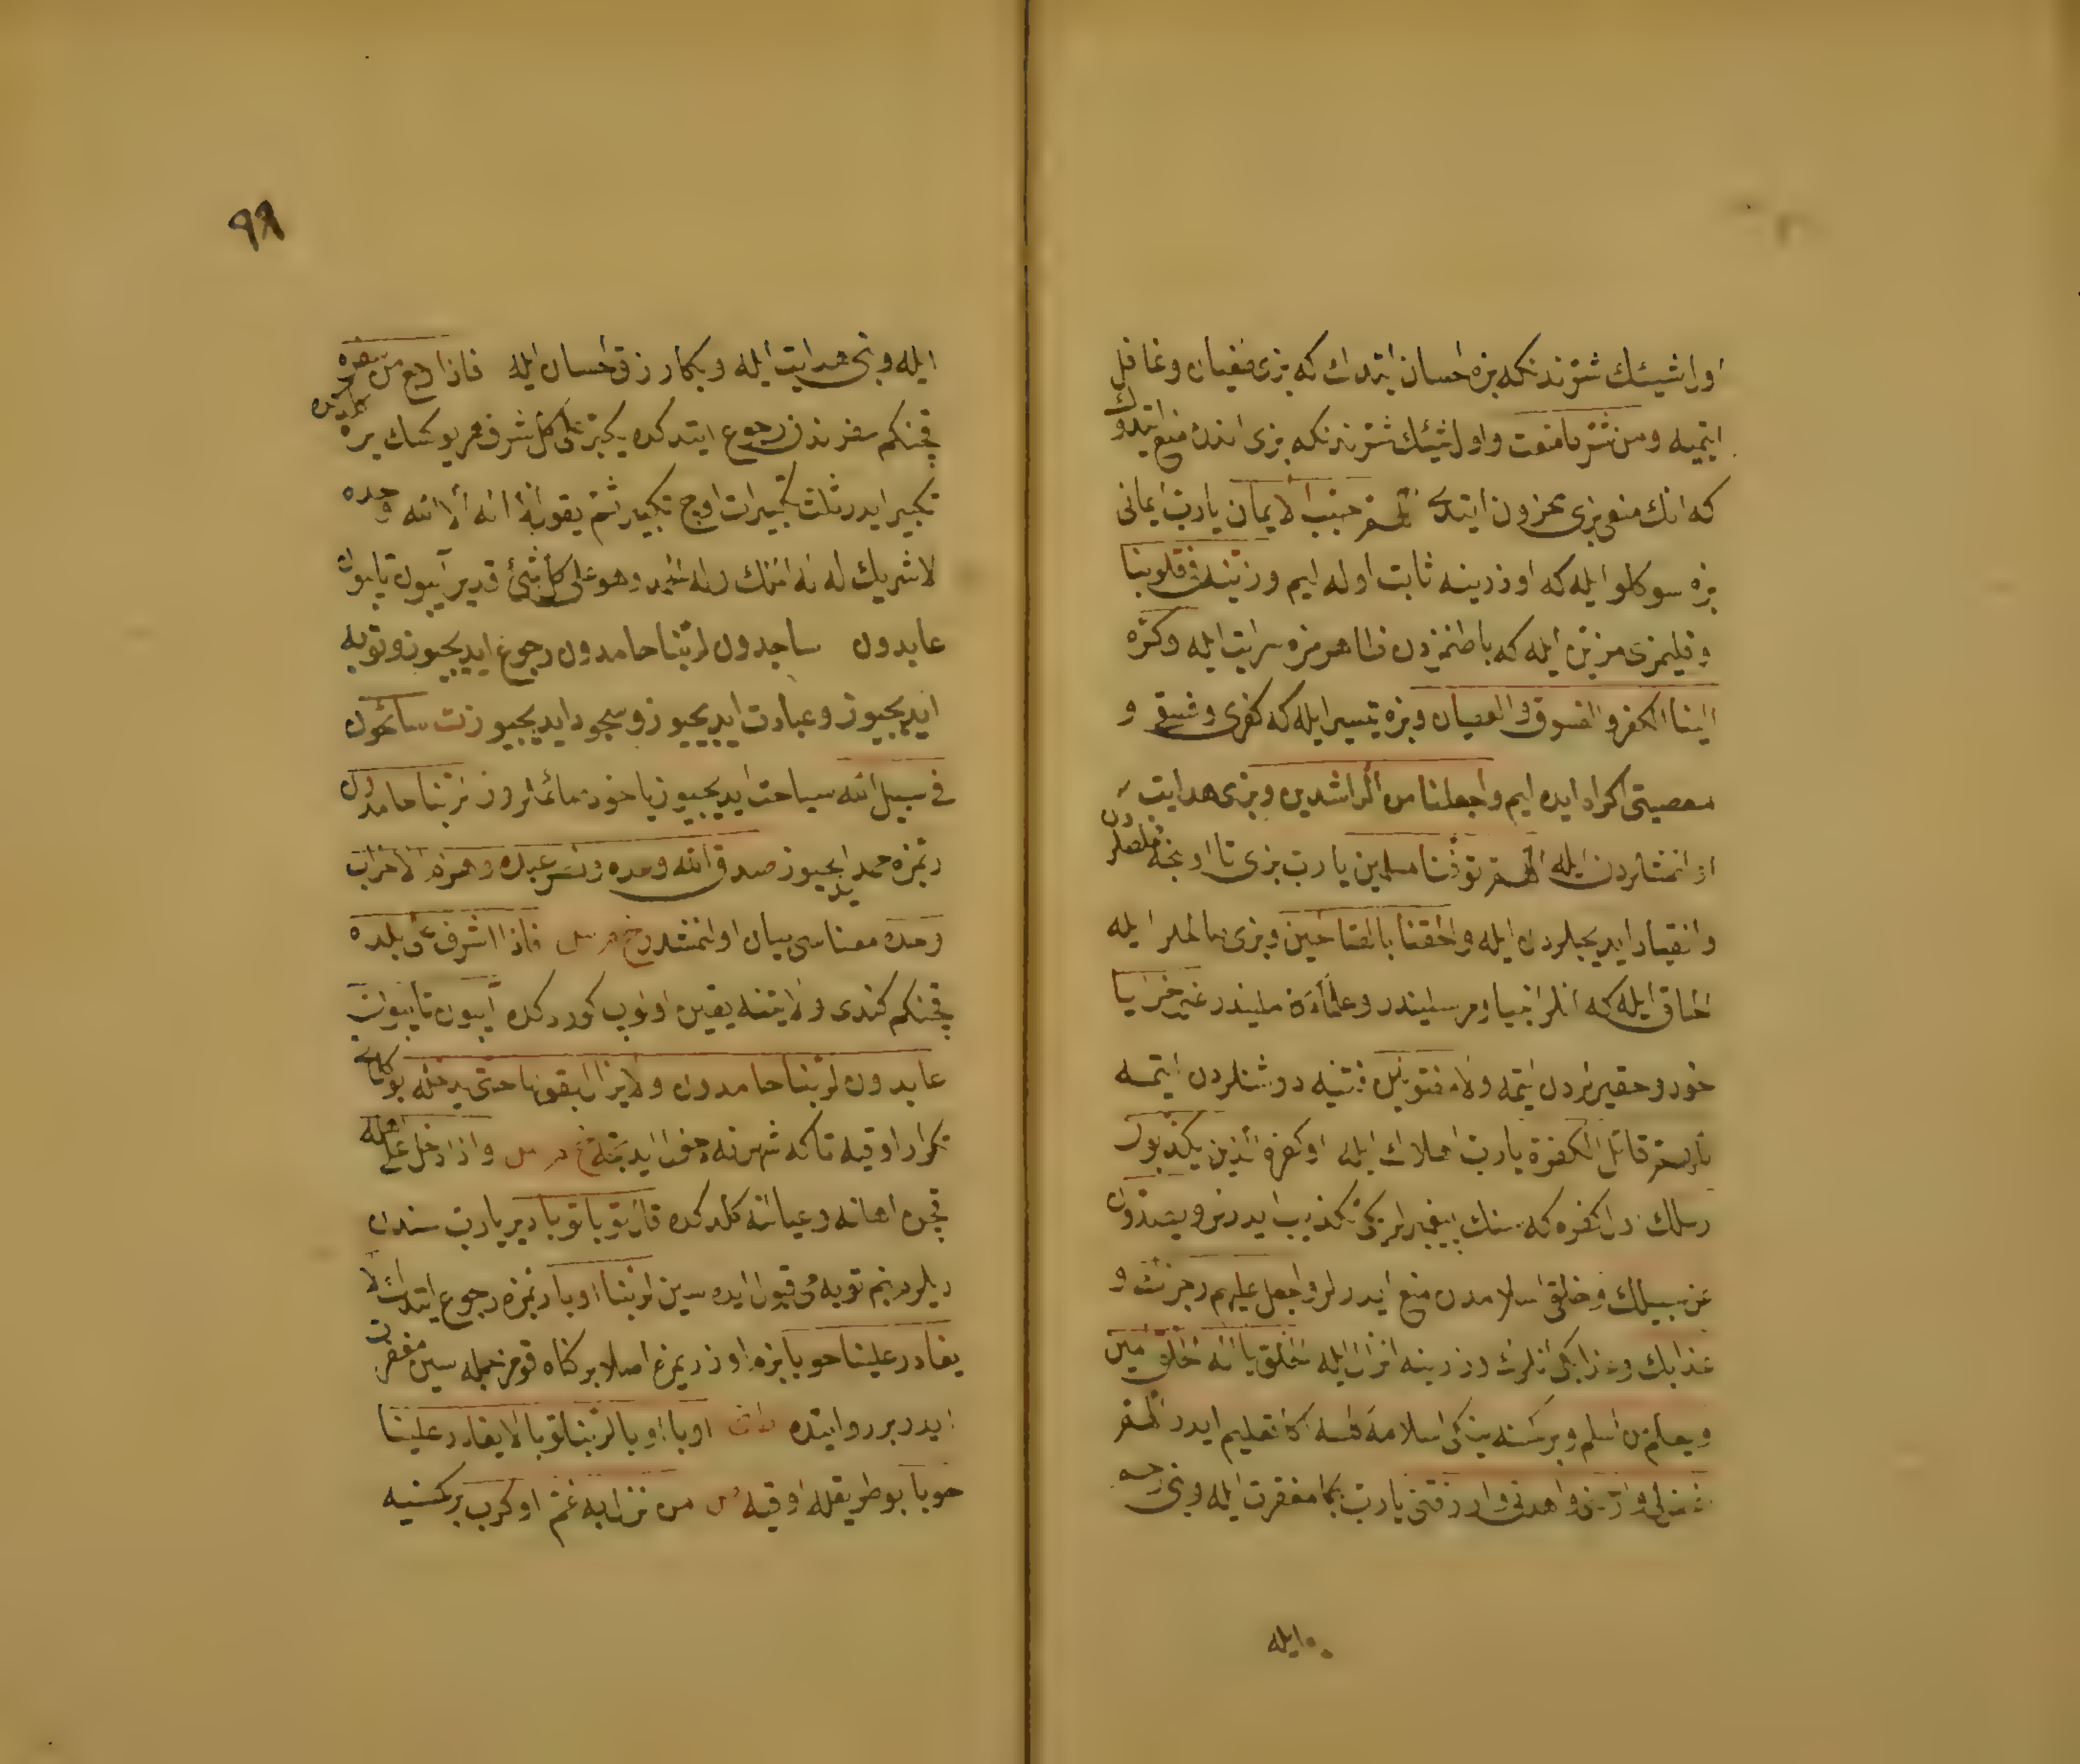 اول شیئك شرندنكه بزه احسان ایتدك كه بزی طغیان و غافل
ایتمیه ومن شر ما منعت و اول شیئك شرندنكه بزی اندن منع ایتدك
كه انك منعی بزی محزون ایتدی اللهم حبب الایمان یارب ایمانی
بزه سوكلو ایله كه اوزرینه ثابت اوله ایم وزینه فی قلوبنا
و قلبمزی مزین ایله كه باطنمزدن ظاهرمزه سرایت ایله وكره
الینا الكفر والفسوق والعصیان و بزه تیسیر ایله كه كفری و فسقی و
معصیتی اكراه ایده ایم واجعلنا من الراشدین و بزی هدایت
ایله اللهم توفنا مسلمین یا رب بزی
وانقیاد ایدیجیلردن ایله والحقنا بالصالحین و بزی صالحلر ایله
الحاق ایله كه انلر انبیا و مرسلیندر و علماء غیر خزایا
خور و حقیرلردن ایتمه ولا مفتونین فتنیه دوشنلردن ایتمه
اللهم قاتل الكفرة یارب اهلاك ایله اول كفره الذین یكذبون
رسلك اول كفره كه سنك پیغمبرلریكی تكذیب ایدرلر ویصدون
عن سبیلك و خلقی اسلامدن منع ایدرلر واجعل علیهم رجزك و
عذابك و عذابكی انلرك اوزرینه انزال ایله اله الحق یا اله الحق آمین
ویعلم من اسلم و بر كسنه ینكی اسلامه كلسه اكا تعلیم ایدر اللهم
اغفرلی وارحمنی واهدنی وارزقنی یارب بكا مغفرت ایله و بنی رحمه
ایله
٩٨
ایله و بنی هدایت ایله و بكا رزق احسان ایله فاذا رجع من سفره
قچنكم سفرندن رجوع ایتدكده یكبر علی كل شرف هر یوكسك یره
تكبیر ایدر ثلث تكبیرات اوچ تكبیر ثم یقول لا اله الا الله وحده
لا شریك له له الملك وله الحمد وهو علی كل شئ قدیر آیبون تایبون
عابدون ساجدون لربنا حامدون رجوع ایدیجیوز و توبه
ایدیجیوز و عبادت ایدیجیوز و سجود ایدیجیوز ت سائحون
فی سبیل الله سیاحت ایدیجیوز یاخود صائملروز لربنا حامدون
ربمزه حمد ایدیجیوز صدق الله وعده ونصر عبده وهزم الاحزاب
وحده معناسی بیان اولنمشدر خ م س فاذا اشرف علی بلده
قچنكم كندی ولایتنه یقین اولوب كوردكده آیبون تایبون
عابدون لربنا حامدون ولا یزال یقولها حتی یدخله بو كلامی
تكرار اوقیه تا كه شهرنه دخول ایدینجه خ م س واذا دخل علی اهله
قچن اهلنه و عیالنه كلدكده قال توبا توبا دیر یارب سندن
دیلرم بنم توبه می قبول ایده سین لربنا اوبا ربمزه رجوع ایتدك لا
یغادر علینا حوبا بزم اوزریمزه اصلا بر كناه قومز جمله سین مغفرت
ایدر بر روایتده اوبا اوبا لربنا توبا لا یغادر علینا
حوبا بو طریقله اوقیه س من نزل به غم او كرب بر كسنیه